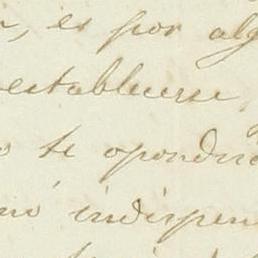 , es por alg
establecerse,
o te opondr
indispen